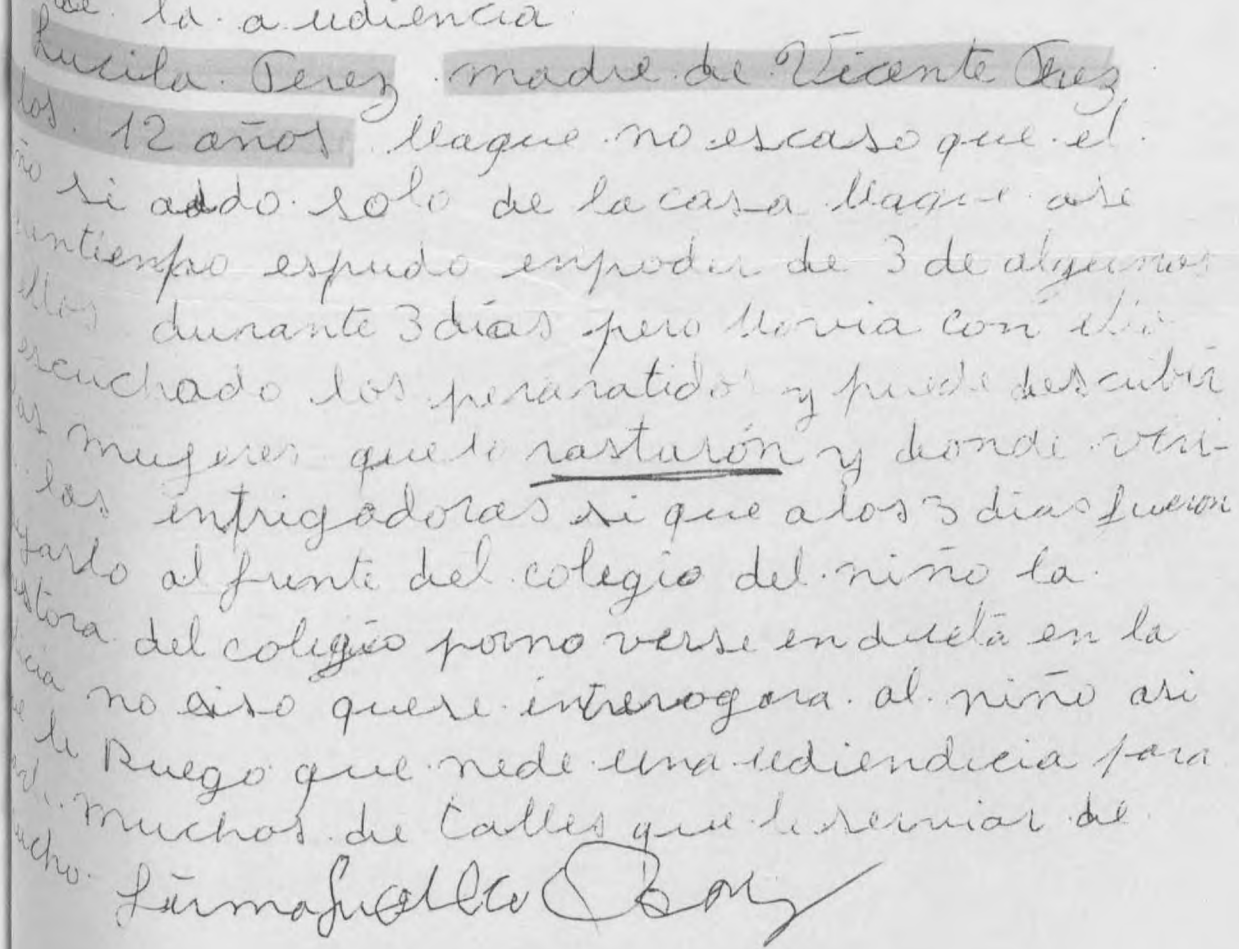 de la audiencia
Lucila Perez madre de Vicente Perez
los. 12 años llaque no escaso que el
ño si addo solo de la casa llaque ase
untiempo espudo enpoder de 3 de algunos
ellos durante 3 dias pero llovia con
escuchado los y puede descubir
las mugeres que le rastarón y donde
las intrigadoras si que a los 3 dias fueron
jarlo al frente del colegio del niño la
stora del colegio porno verse en duelta en la
no siso quese interogara al niño asi
e le Ruego que nede una udiendicia para
muchos de talles que le serviar de
ucho. firma